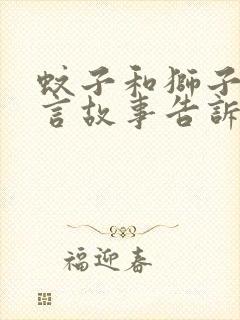 蚊子和獅子
言故事告訴
福迎春